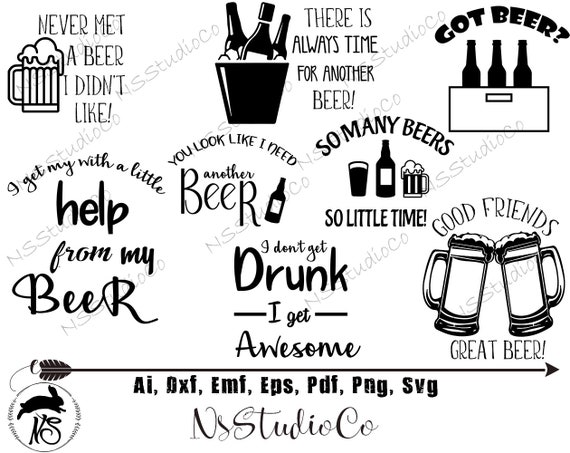 NEVER MET
A BEER
I DIDN'T
LIKE!
THERE IS
ALWAYS TIME
FOR ANOTHER
BEER!
GOT BEER?
I get my with a little
help
from my
BeeR
YOU LOOK LIKE I NEED
another
BeeR
SO MANY BEERS
SO LITTLE TIME!
I don't get
Drunk
I get
Awesome
GOOD FRIENDS
GREAT BEER!
Ai, Dxf, Emf, Eps, Pdf, Png, Svg
NS
NsStudioCo
NSStudioCo
NSStudioCo
NSStudioCo
NSStudioCo
NSStudioCo
NSStudioCo
NSStudioCo
NSStudioCo
NSStudioCo